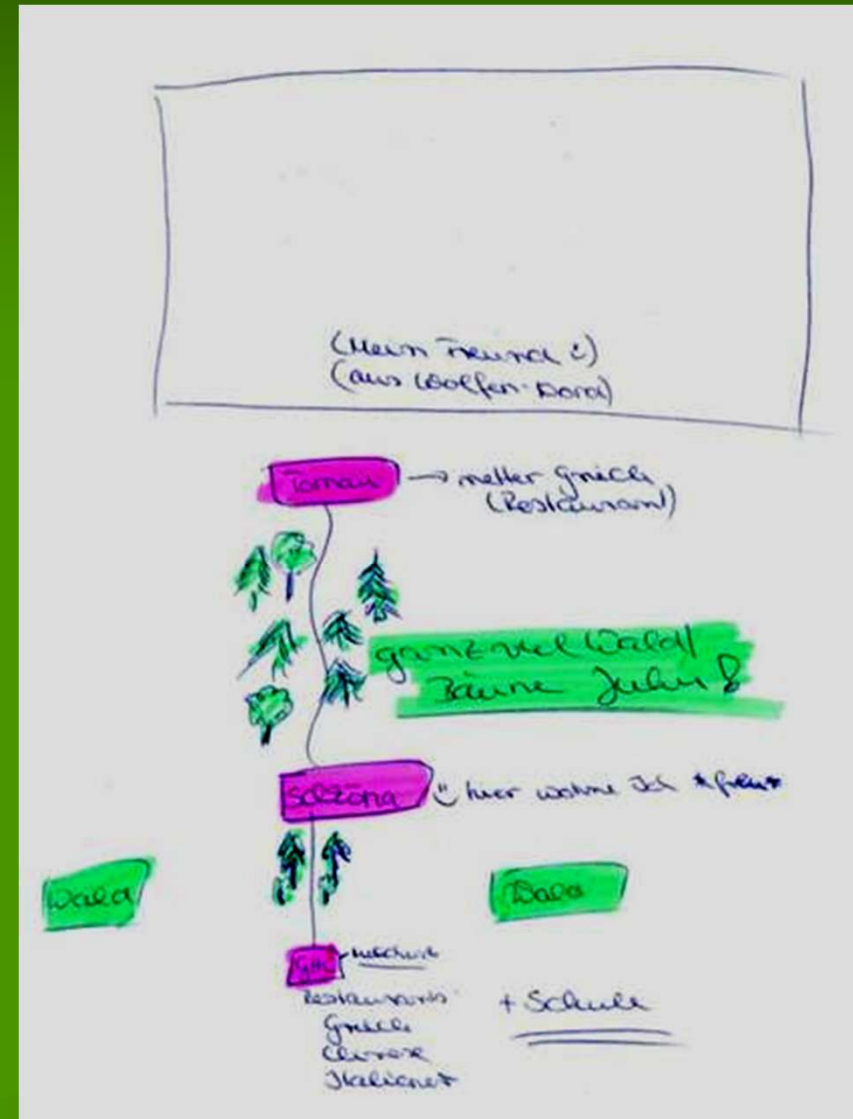 (Mein Freund :)
(aus Wolfen-Nord)
Tornau → netter Griech
(Restaurant)
ganz viel Wald!
Bäume Juhu
Sollzona
:) hier wohne Ich *freu*
Wald
Wald
GHC
Restaurants
Griech
Chinese
Italiener
+ Schule